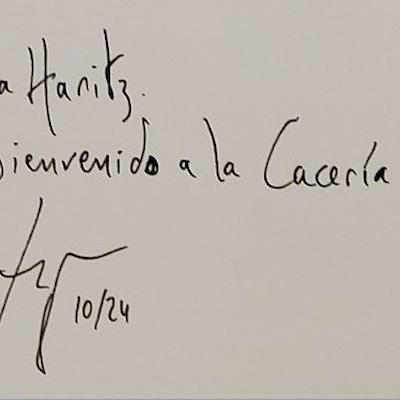 a Haritz.
Bienvenido a la Cacería
10/24